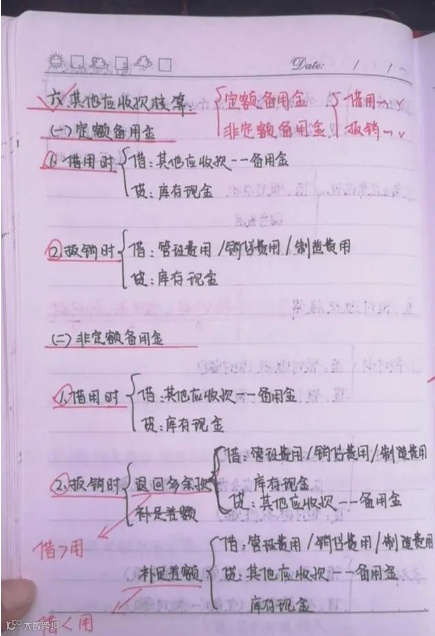 Date: / /
六、其他应收款核算 定额备用金 借用
非定额备用金 报销
(一)定额备用金
1.借用时 借:其他应收款——备用金
贷:库存现金
2.报销时 借:管理费用/销售费用/制造费用
贷:库存现金
(二)非定额备用金
1.借用时 借:其他应收款——备用金
贷:库存现金
2.报销时 退回多余款 借:管理费用/销售费用/制造费用
库存现金
贷:其他应收款——备用金
补足差额
借>用
补足差额 借:管理费用/销售费用/制造费用
贷:其他应收款——备用金
库存现金
借<用
大数跨境